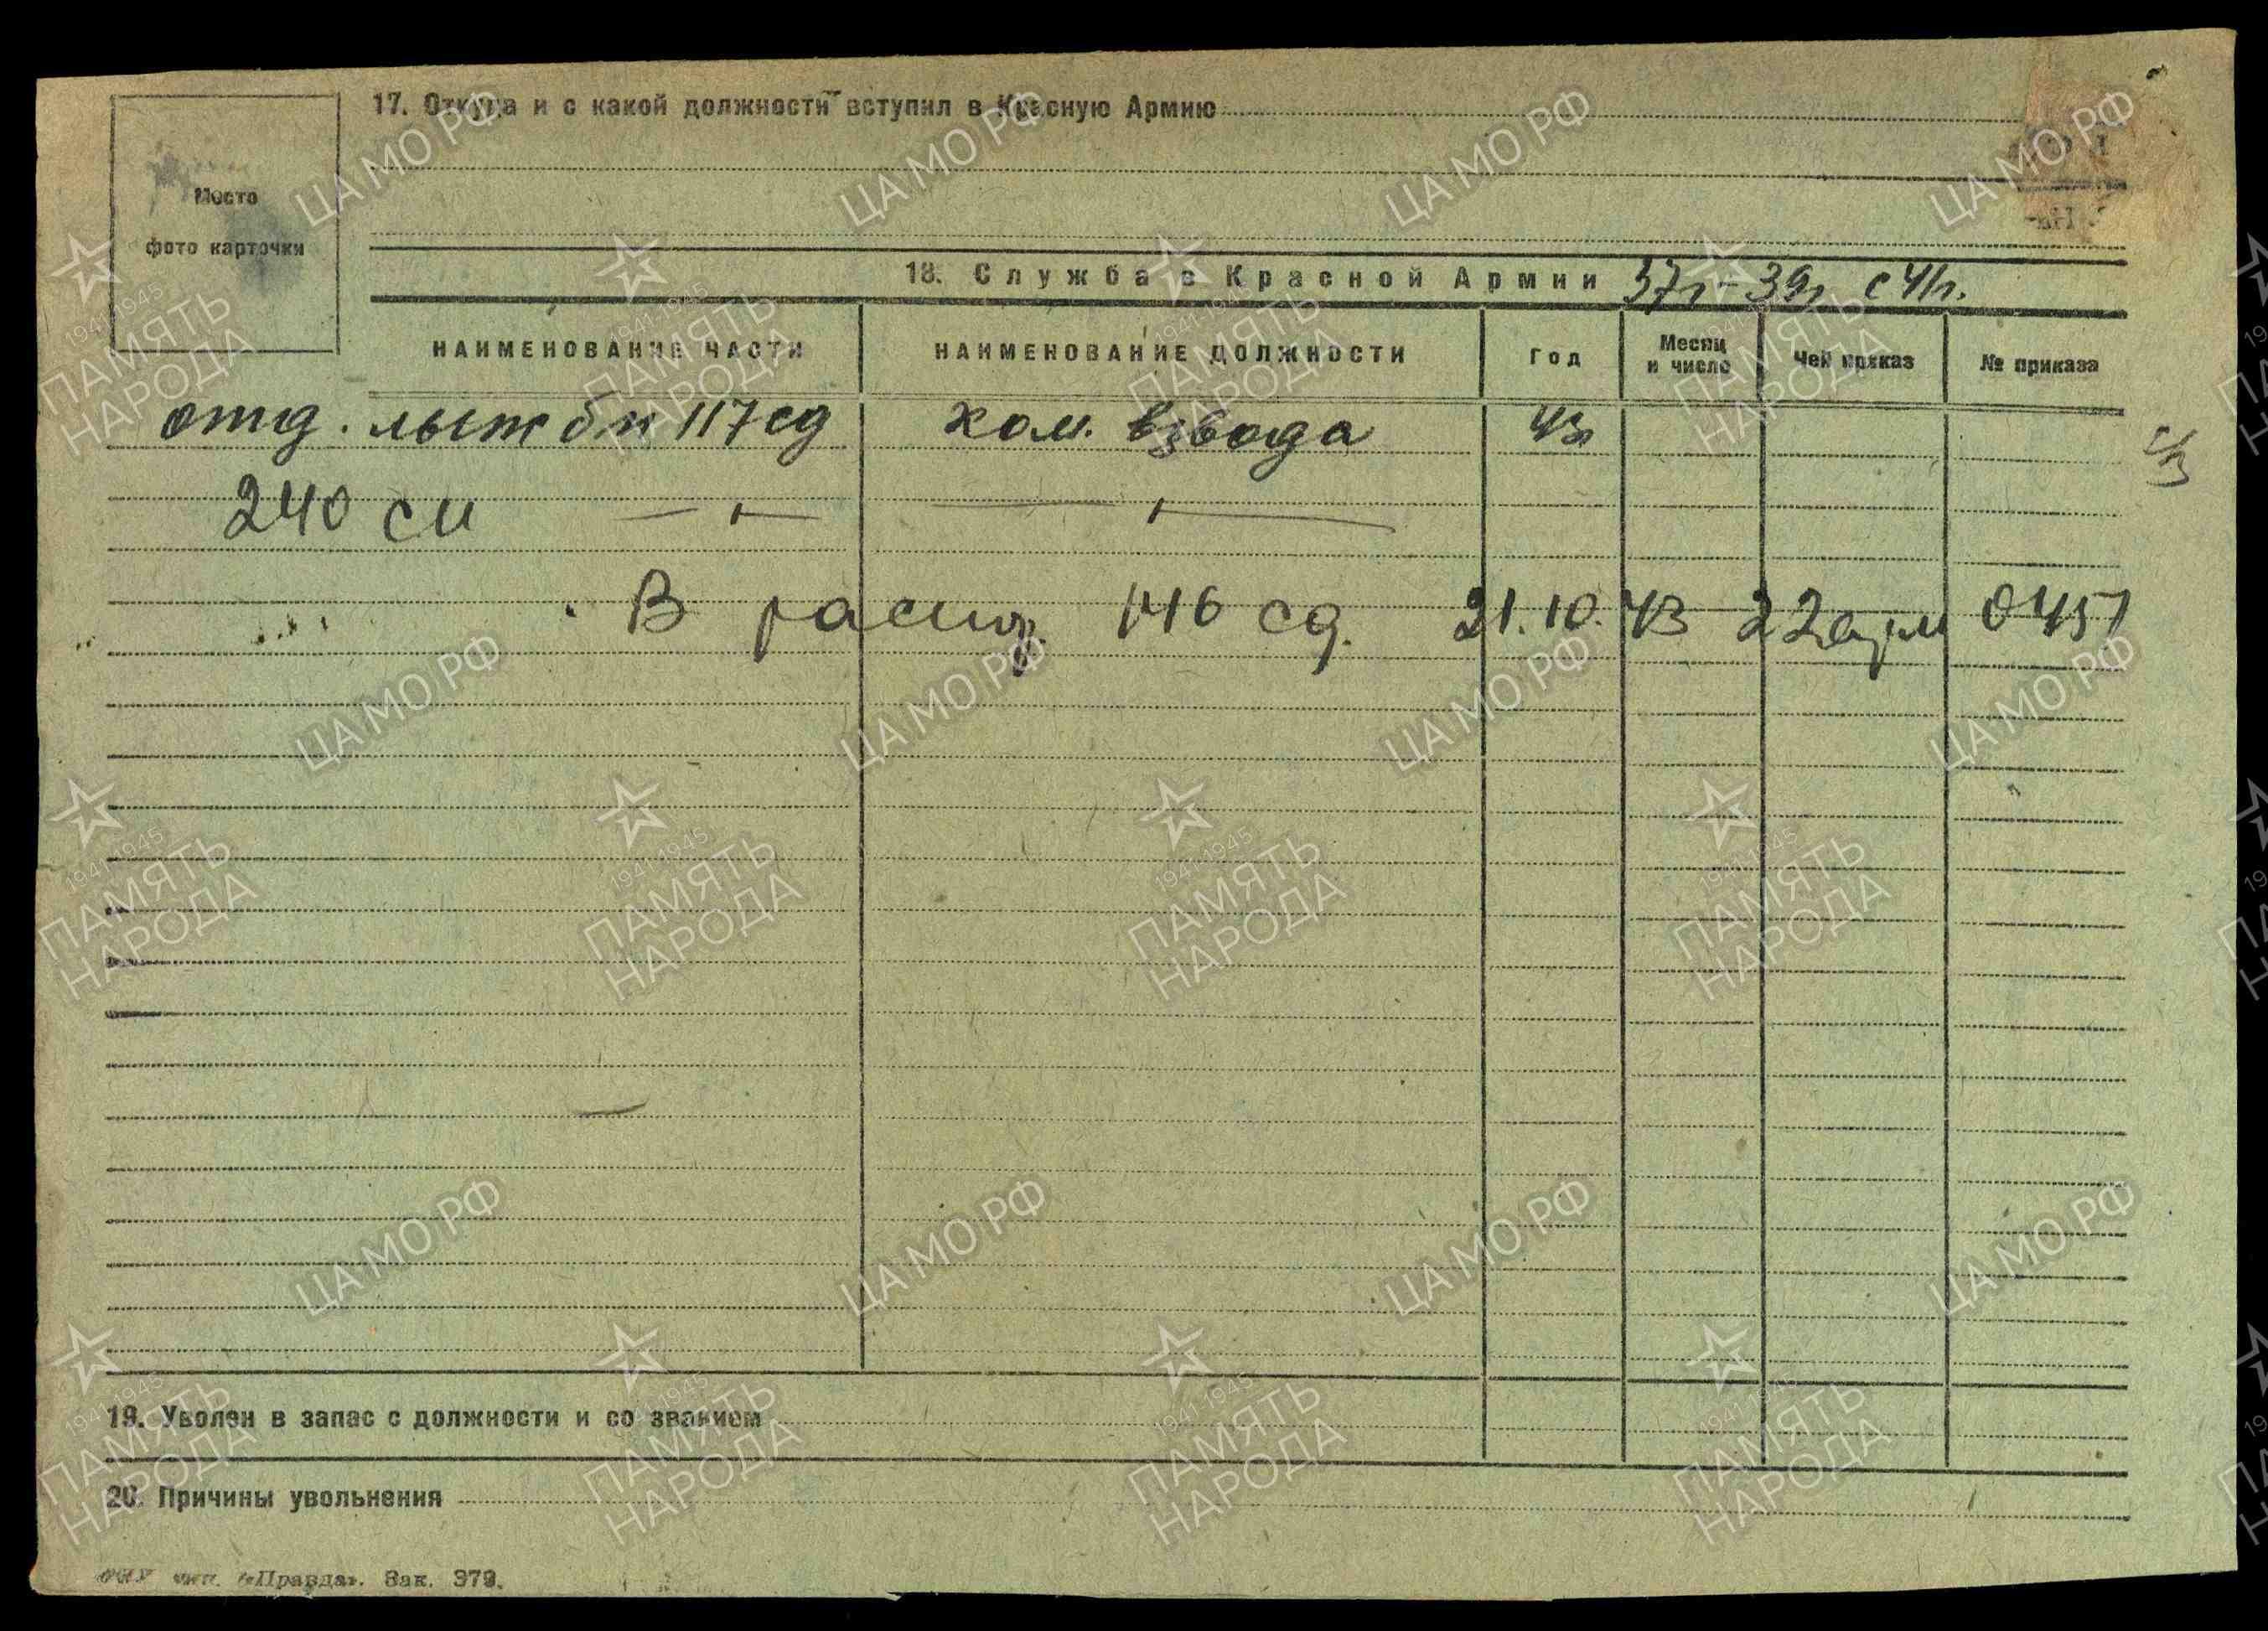 17. Откуда и с какой должности вступил в Красную Армию
Место
фото карточки
18. Служба в Красной Армии 37г-39г с 41г.
НАИМЕНОВАНИЕ ЧАСТИ НАИМЕНОВАНИЕ ДОЛЖНОСТИ Год Месяц и число Чей приказ № приказа
отд. лыж бн 117 сд ком. взвода 43г
240 сп — " — — " —
В расп. 146 сд. 21.10.43 22 арм 0451
19. Уволен в запас с должности и со званием
20. Причины увольнения
тип. «Правда». Зак. 379.
ЦА МО РФ
1941-1945
ПАМЯТЬ
НАРОДА